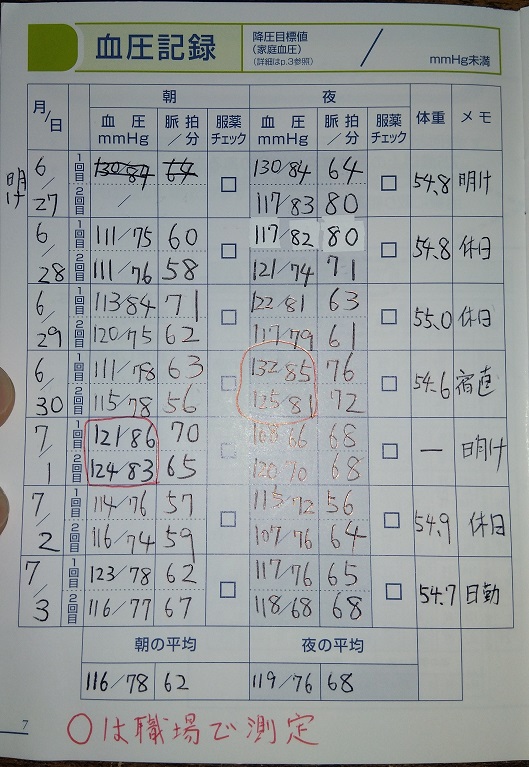 血圧記録
降圧目標値
(家庭血圧)
(詳細はp.3参照)
/
mmHg未満
月/日 朝 夜 体重 メモ
血圧 mmHg 脈拍/分 服薬チェック 血圧 mmHg 脈拍/分 服薬チェック
明け
6/27 1回目 130/84 64 130/84 64 54.8 明け
2回目 / 117/83 80
6/28 1回目 111/75 60 117/82 80 54.8 休日
2回目 111/76 58 121/74 71
6/29 1回目 113/84 71 122/81 63 55.0 休日
2回目 120/75 62 117/79 61
6/30 1回目 111/78 63 132/85 76 54.6 宿直
2回目 115/78 56 125/81 72
7/1 1回目 121/86 70 108/66 68 — 明け
2回目 124/83 65 120/70 68
7/2 1回目 114/76 57 115/72 56 54.9 休日
2回目 116/74 59 107/76 64
7/3 1回目 123/78 62 117/76 65 54.7 日勤
2回目 116/77 67 118/68 68
朝の平均 夜の平均
116/78 62 119/76 68
7
○は職場で測定